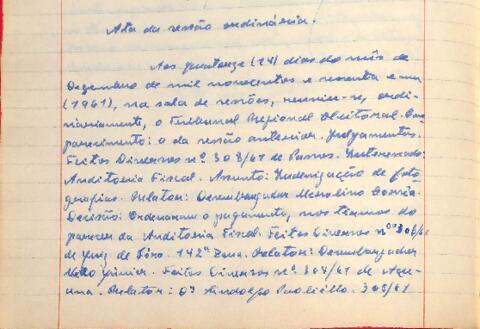 Ata da sessão ordinária.
Aos quatorze (14) dias do mês de
Dezembro de mil novecentos e sessenta e um
(1961), na sala de sessões, reuniu-se, ordi-
nàriamente, o Tribunal Regional Eleitoral. Com-
parecimento: o da sessão anterior. Julgamentos.
Feitos Diversos nº 303/61 de Passos. Interessado:
Auditoria Fiscal. Assunto: Indenização de foto-
grafias. Relator: Desembargador Merolino Corrêa.
Decisão: Ordenaram o pagamento, nos termos do
parecer da Auditoria Fiscal. Feitos Diversos nº 306/61
de Juiz de Fóra. 142ª Zona. Relator: Desembargador
Mello Júnior. Feitos Diversos nº 307/61 de
Relator: Dr. Lindolfo Paoliello. 308/61